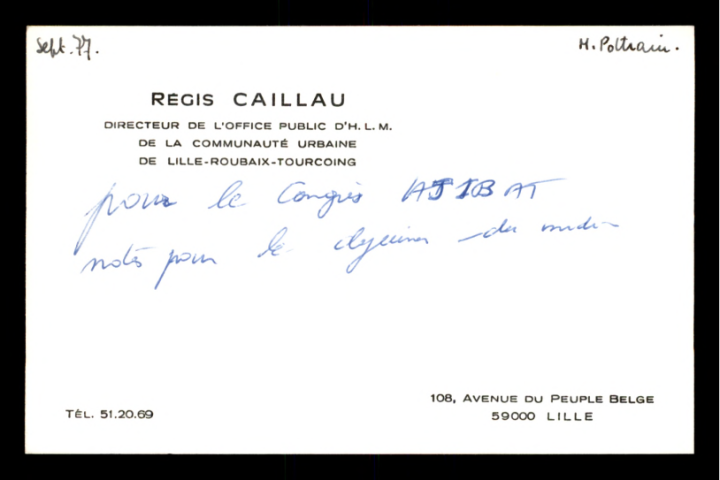 Sept. 77.
M. Poltrain.
RÉGIS CAILLAU
DIRECTEUR DE L'OFFICE PUBLIC D'H.L.M.
DE LA COMMUNAUTÉ URBAINE
DE LILLE-ROUBAIX-TOURCOING
pour le Congrès
pour le déjeuner du
TÉL. 51.20.69
108, AVENUE DU PEUPLE BELGE
59000 LILLE